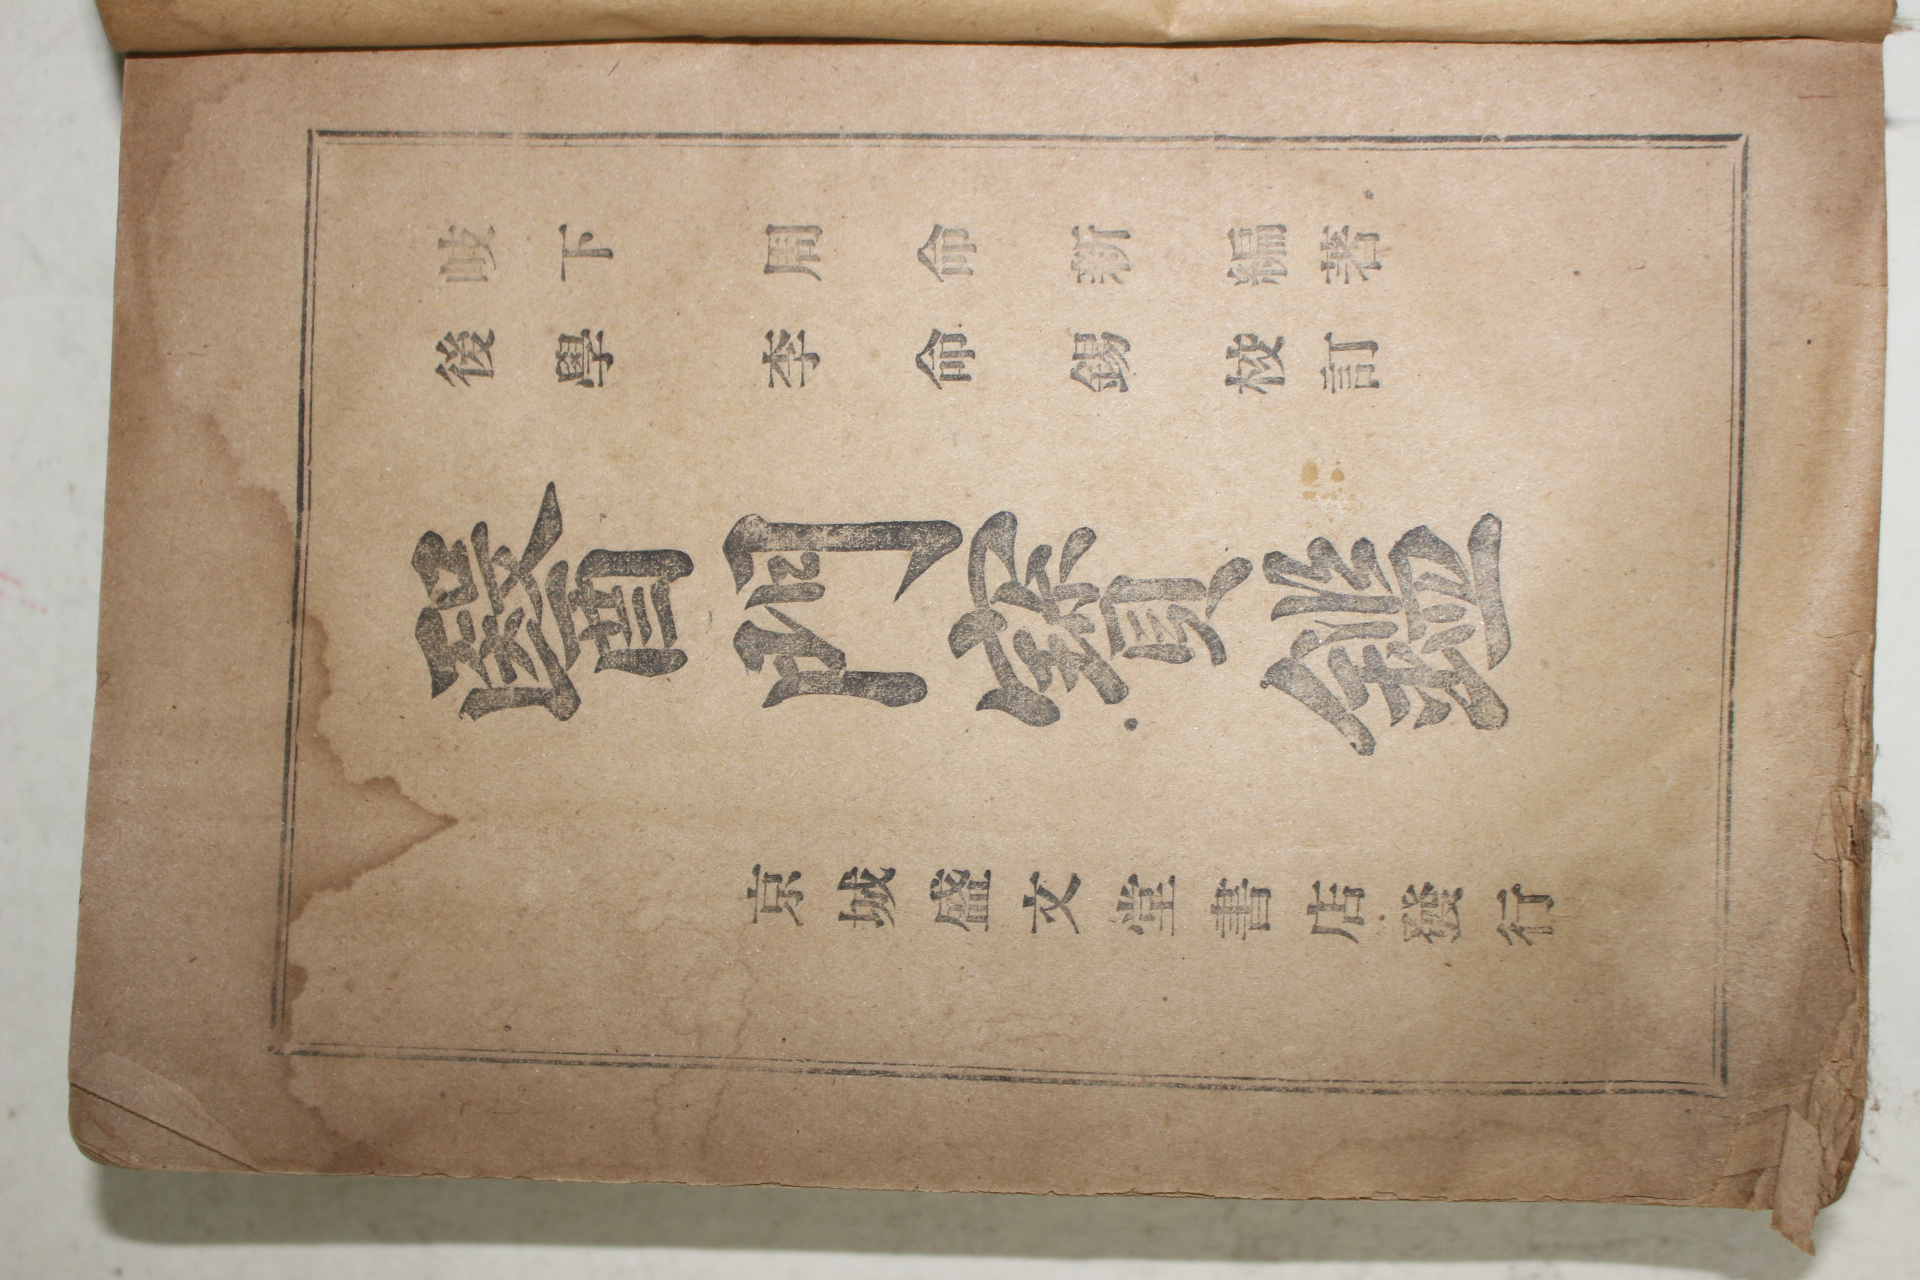 岐下 周命新 編著
後學 李命錫 校訂
醫門寶鑑
京城盛文堂書店發行